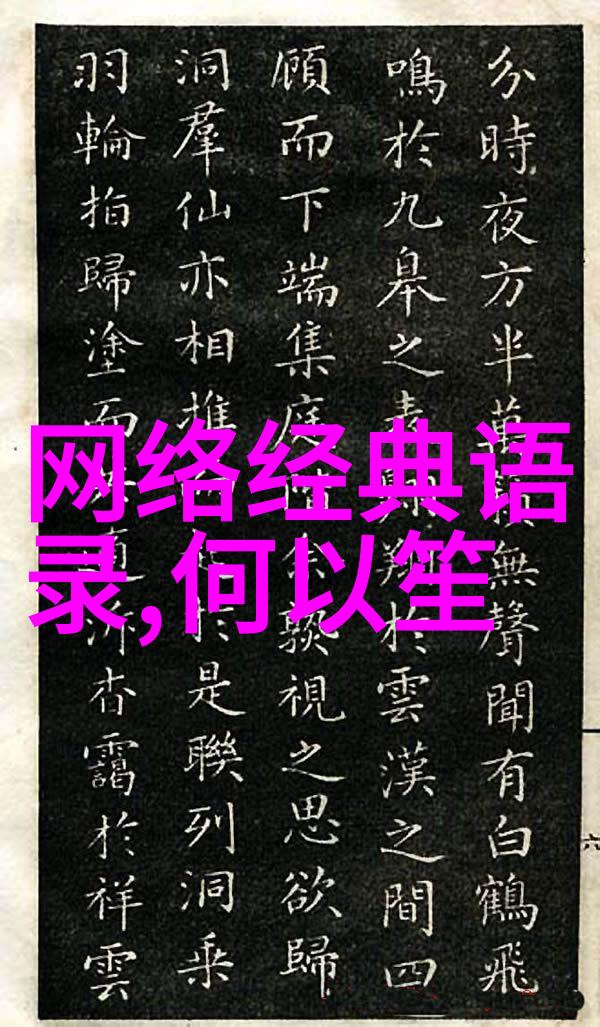 网络经典语录,何以笙
分時夜方半萬無聲聞有白鶴飛
鳴於九皋之表翔於雲漢之間四
顧而下端集庭余孰視之思欲歸
洞羣仙亦相推於是聯列洞乘
羽輪指歸塗而杳靄於祥雲
六